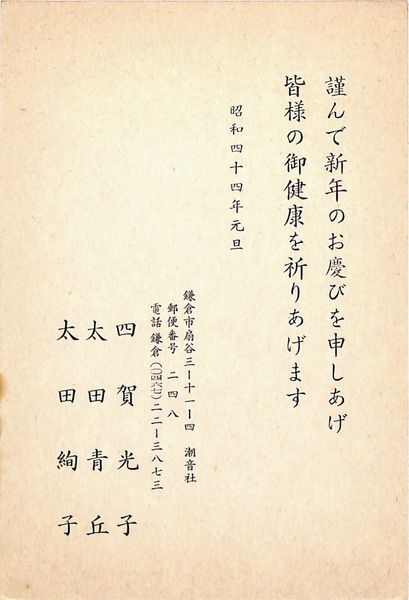 謹んで新年のお慶びを申しあげ
皆様の御健康を祈りあげます
昭和四十四年元旦
鎌倉市扇谷三ー十一ー四　潮音社
郵便番号　二四八
電話鎌倉(〇四六七)二二ー三八七三
四賀光子
太田青丘
太田絢子